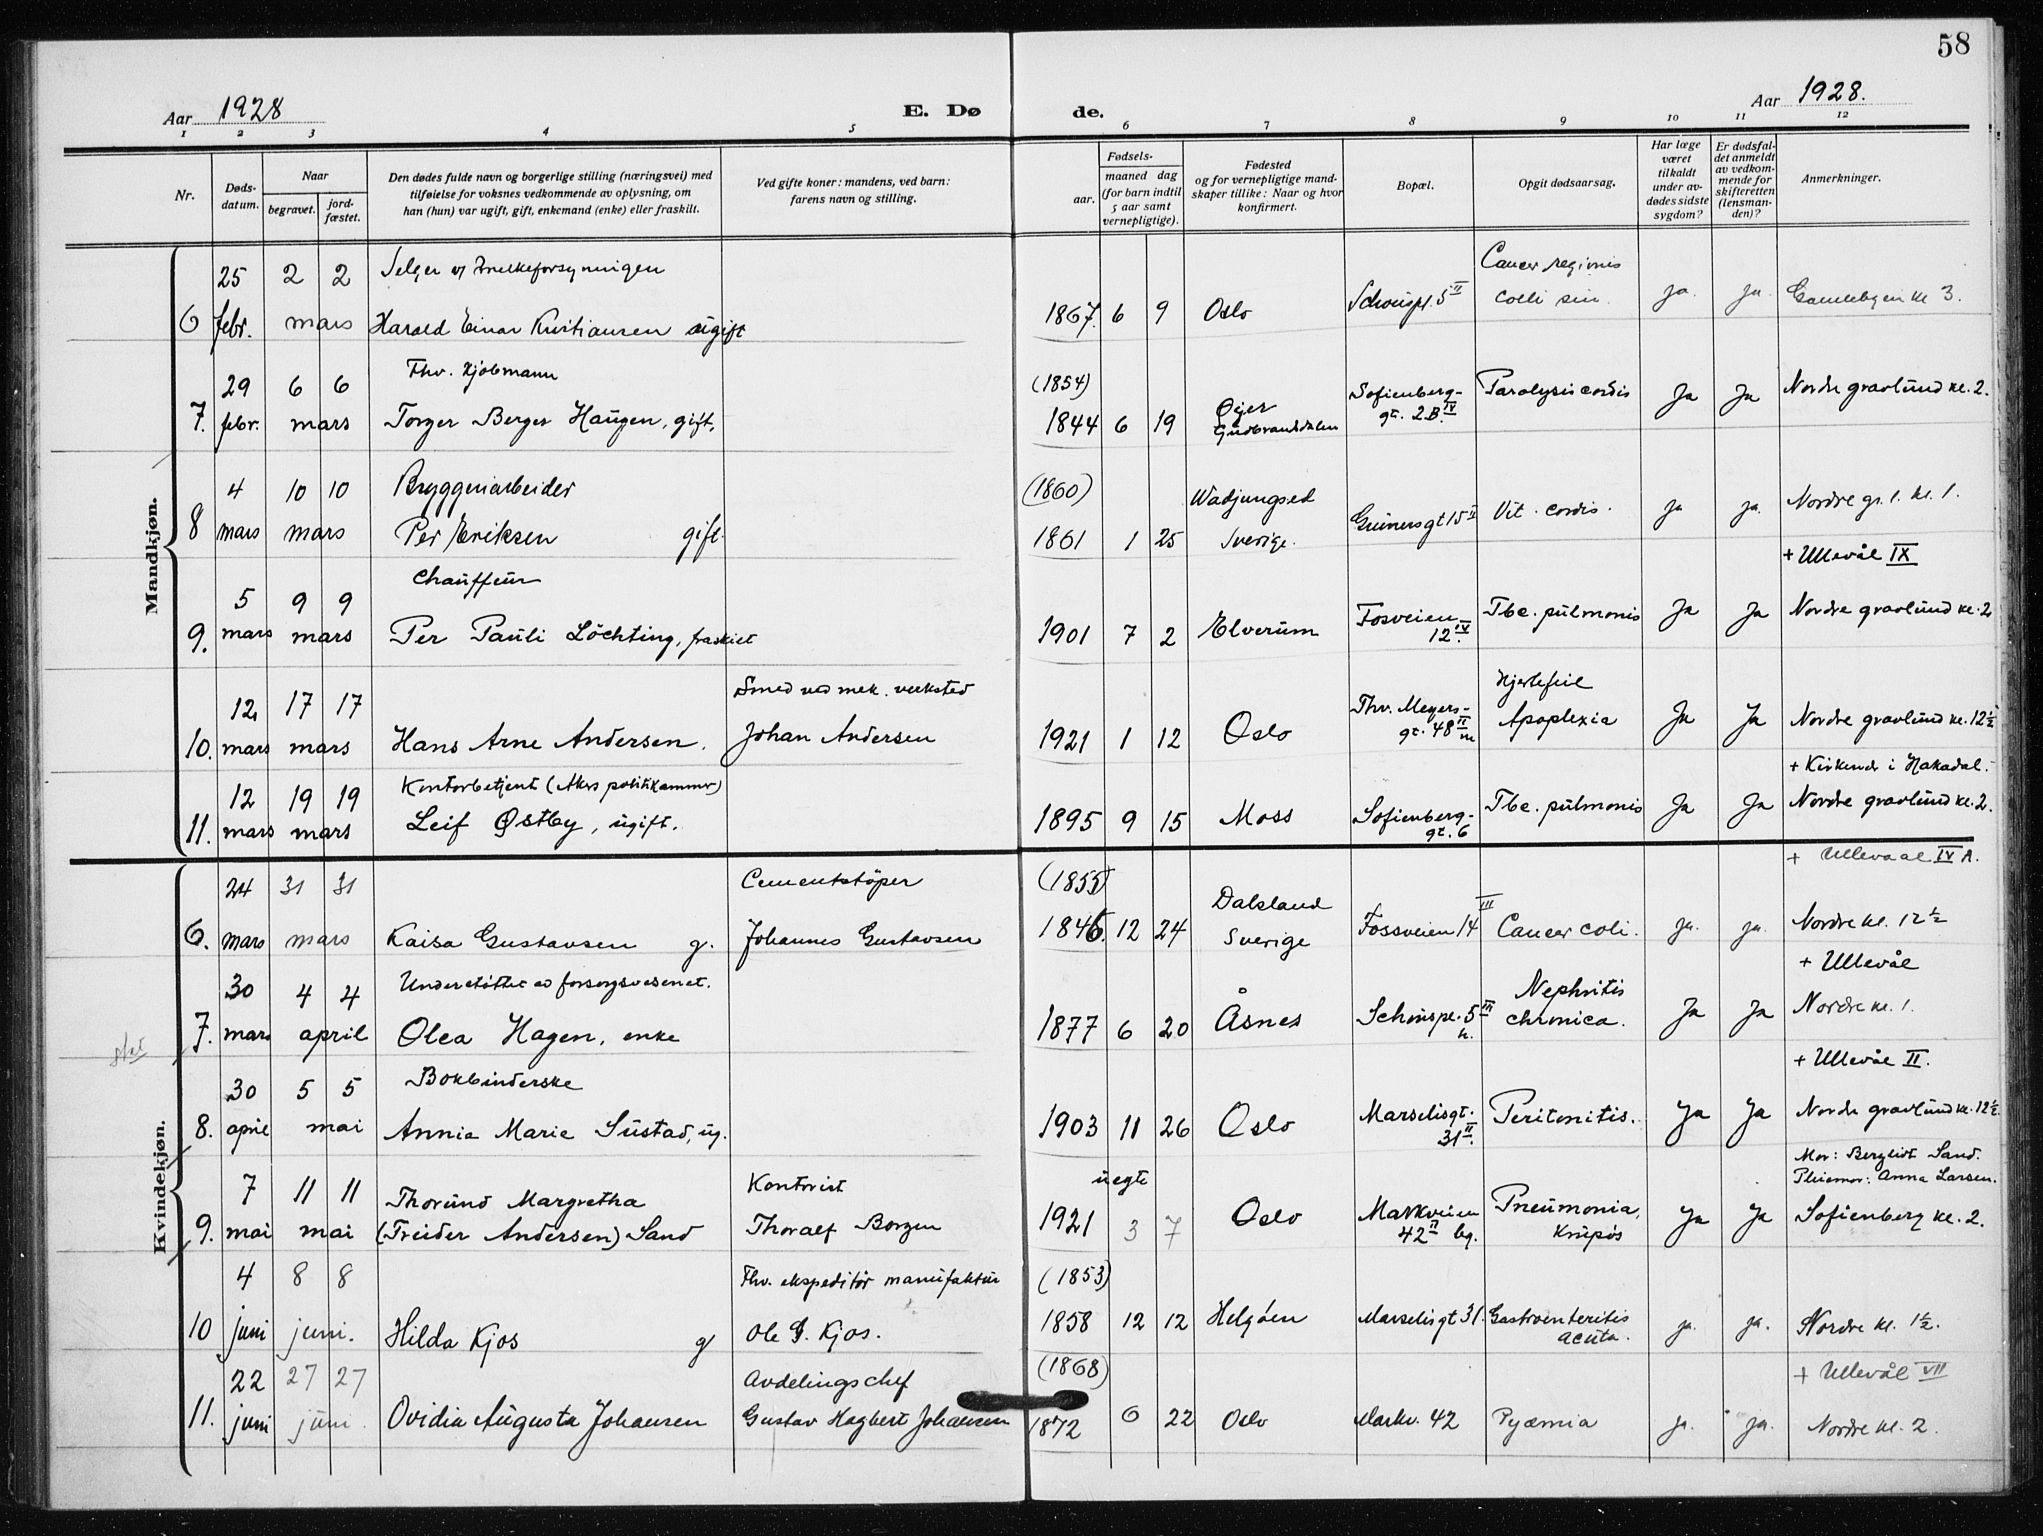 58
Aar 1928
E. Dø
de.
Aar 1928.
1 2 3 4 5 6 7 8 9 10 11 12
Nr.
Døds-
datum.
Naar
begravet.
jord-
fæstet.
Den dødes fulde navn og borgerlige stilling (næringsvei) med
tilføielse for voksnes vedkommende av oplysning, om
han (hun) var ugift, gift, enkemand (enke) eller fraskilt.
Ved gifte koner: mandens, ved barn:
farens navn og stilling.
Fødsels-
aar.
maaned dag
(for barn indtil
5 aar samt
vernepligtige).
Fødested
og for vernepligtige mand-
skaper tillike: Naar og hvor
konfirmert.
Bopæl.
Opgit dødsaarsag.
Har læge
været
tilkaldt
under av-
dødes sidste
sygdom?
Er dødsfal-
det anmeldt
av vedkom-
mende for
skifteretten
(lensman-
den)?
Anmerkninger.
Mandkjøn.
25 2 2 Selger Cancer regionis
6 febr. mars Harald Einar Kristiansen ugift 1867. 6 9 Oslo Schouspl. 5 II colli sin. ja. ja. Gamlebyen kl 3.
29 6 6 Fhv. kjøbmann (1854)
7. febr. mars Torger Berger Haugen, gift, 1844 6 19 Øyer Gudbrandsdalen Sofienberg-
gt. 2B. IV Paralysis cordis Ja Ja Nordre gravlund kl. 2.
4 10 10 Bryggeriarbeider (1860)
8 mars mars Per Eriksen gift. 1861 1 25 Sverige. Grünersgt 15 II Vit. cordis. ja ja. Nordre gr. l. kl. 1.
+ Ullevål IX
5 9 9 Chauffeur
9. mars mars Per Pauli Löchting, fraskilt 1901 7 2 Elverum Fosveien
12. IV Tbc. pulmonis Ja Ja Nordre gravlund kl. 2
12 17 17 Smed ved mek. verksted Hjertefeil
10. mars mars Hans Arne Andersen. Johan Andersen 1921 1 12 Oslo Thv. Meyers-
gt. 48 II Apoplexia Ja Ja Nordre gravlund kl. 12½
+ Kirkend i Hakadal.
12 19 19 Kontorbetjent (Akers politikammer)
11. mars mars Leif Østby, ugift. 1895 9 15 Moss Sofienberg-
gt. 6 Tbc. pulmonis Ja Ja Nordre gravlund kl. 2.
Kvindekjøn.
+ Ullevaal IV A.
24 31 31 Cementstöper (1855)
6. mars mars Kaisa Gustavsen g. Johannes Gustavsen 1846. 12 24 Dalsland
Sverige Fossveien 14 III Cancer coli. ja. ja. Nordre kl. 12½
+ Ullevål
30 4 4 Understöttet av forsorgsvesenet.
7. mars april Olea Hagen, enke 1877 6 20 Åsnes Schouspl. 5 III
h. Nephritis
chronica. Ja Ja Nordre kl. 1.
+ Ullevål II.
30 5 5 Bokbinderske
8. april mai Annie Marie Sustad, ug. 1903 11 26 Oslo Marselisgt.
31 II. Peritonitis. Ja Ja Nordre gravlund kl. 12½
Mor: Bergliot Sand.
Pleiemor: Anna Larsen.
7 11 11 Thorund Margretha Kontorist uegte
9. mai mai (Treider Andersen) Sand Thoralf Borgen 1921 3 7 Oslo Markveien
42 II bg. Pneumonia,
Krupøs Ja Ja Sofienberg kl. 2.
4 8 8 Fhv. ekspeditør manufaktur (1853)
10 juni juni. Hilda Kjos g Ole G. Kjos. 1858 12 12 Helgöen Marselisgt 31. Gastroenteritis
acuta. ja. ja. Nordre kl. 1½.
+ Ullevål VII
22 27 27 Avdelingschef (1868)
11. juni juni. Ovidia Augusta Johansen Gustav Hagbert Johansen 1872 6 22 Oslo Markv. 42 Pyæmia ja. ja. Nordre kl. 2.